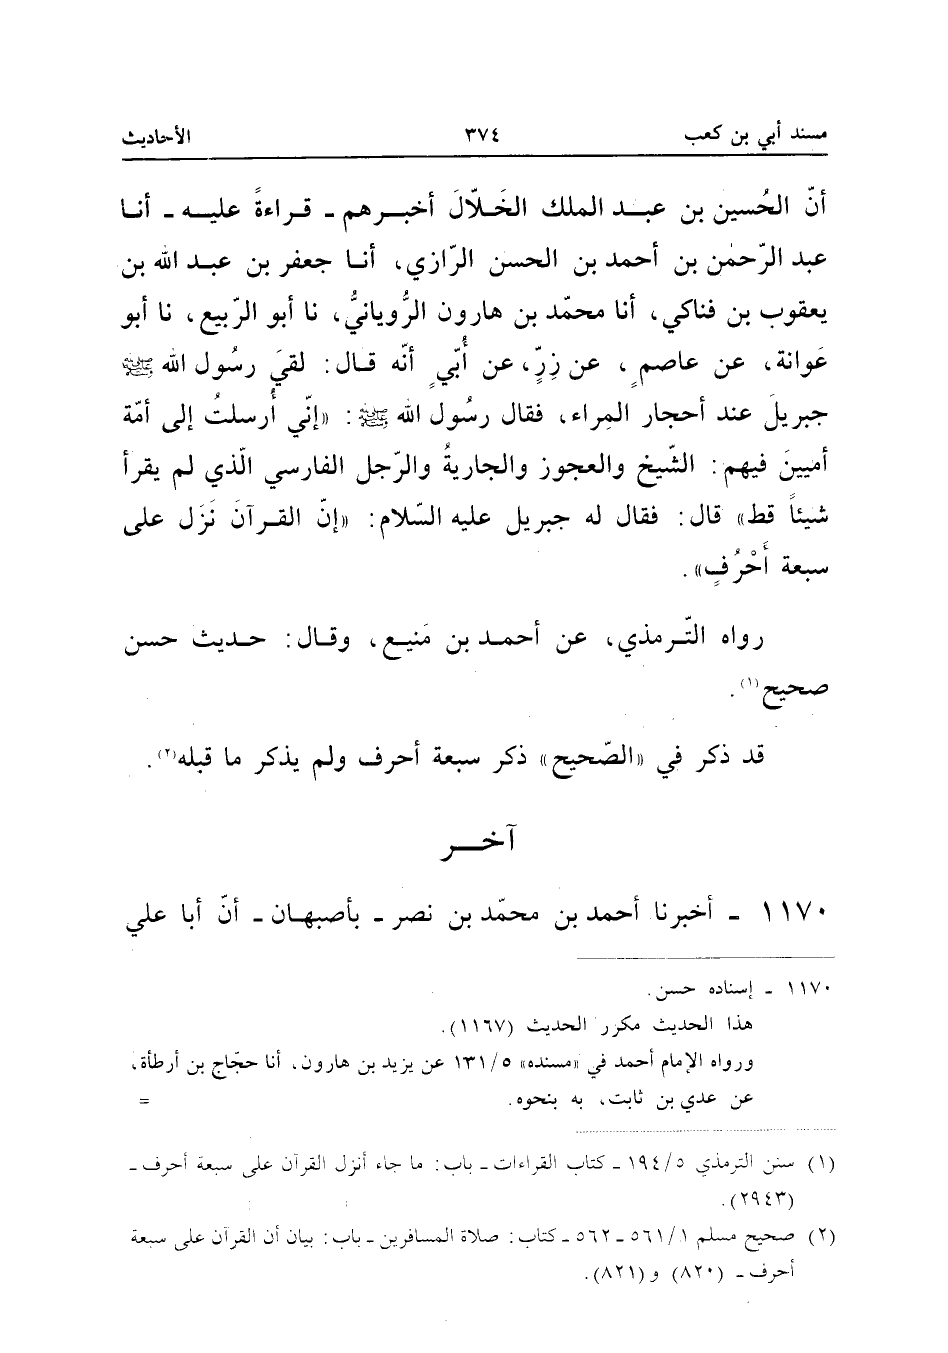 مسند أبي بن كعب ٣٧٤ الأحاديث
أنّ الحُسين بن عبد الملك الخَلاّلَ أخبرهم ـ قراءةً عليه ـ أنا
عبد الرّحمٰن بن أحمد بن الحسن الرّازي، أنا جعفر بن عبد الله بن
يعقوب بن فناكي، أنا محمّد بن هارون الرُّويانيُّ، نا أبو الرّبيع، نا أبو
عَوانة، عن عاصمٍ، عن زِرٍّ، عن أُبّيٍ أنّه قال: لقيَ رسُول الله ﷺ
جبريلَ عند أحجار المِراء، فقال رسُول الله ﷺ: «إنّي أُرسلتُ إلى أمّة
أميينَ فيهم: الشّيخ والعجوز والجاريةُ والرّجل الفارسي الّذي لم يقرأ
شيئاً قط» قال: فقال له جبريل عليه السّلام: «إنّ القرآنَ نَزَل على
سبعة أَحْرُفٍ».
رواه التّرمذي، عن أحمد بن مَنيع، وقال: حديث حسن
صحيح(١).
قد ذكر في «الصّحيح» ذكر سبعة أحرف ولم يذكر ما قبله(٢).
آخر
١١٧٠ ـ أخبرنا أحمد بن محمّد بن نصر ـ بأصبهان ـ أنّ أبا علي
١١٧٠ ـ إسناده حسن.
هذا الحديث مكرر الحديث (١١٦٧).
ورواه الإمام أحمد في «مسنده» ١٣١/٥ عن يزيد بن هارون، أنا حجّاج بن أرطأة،
عن عدي بن ثابت، به بنحوه. =
(١) سنن الترمذي ١٩٤/٥ ـ كتاب القراءات ـ باب: ما جاء أنزل القرآن على سبعة أحرف ـ
(٢٩٤٣).
(٢) صحيح مسلم ٥٦١/١ ـ ٥٦٢ ـ كتاب: صلاة المسافرين ـ باب: بيان أن القرآن على سبعة
أحرف ـ (٨٢٠) و(٨٢١).